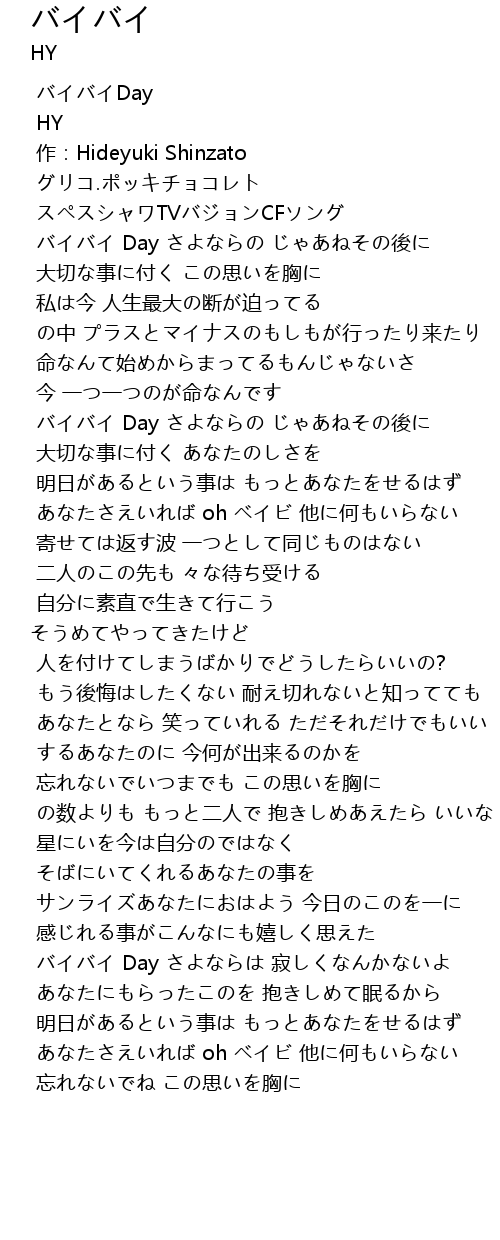 バイバイ
HY
バイバイDay
HY
作：Hideyuki Shinzato
グリコ.ポッキチョコレト
スペスシャワTVバジョンCFソング
バイバイ Day さよならの じゃあねその後に
大切な事に付く この思いを胸に
私は今 人生最大の断が迫ってる
の中 プラスとマイナスのもしもが行ったり来たり
命なんて始めからまってるもんじゃないさ
今 一つ一つのが命なんです
バイバイ Day さよならの じゃあねその後に
大切な事に付く あなたのしさを
明日があるという事は もっとあなたをせるはず
あなたさえいれば oh ベイビ 他に何もいらない
寄せては返す波 一つとして同じものはない
二人のこの先も 々な待ち受ける
自分に素直で生きて行こう
そうめてやってきたけど
人を付けてしまうばかりでどうしたらいいの?
もう後悔はしたくない 耐え切れないと知ってても
あなたとなら 笑っていれる ただそれだけでもいい
するあなたのに 今何が出来るのかを
忘れないでいつまでも この思いを胸に
の数よりも もっと二人で 抱きしめあえたら いいな
星にいを今は自分のではなく
そばにいてくれるあなたの事を
サンライズあなたにおはよう 今日のこのを一に
感じれる事がこんなにも嬉しく思えた
バイバイ Day さよならは 寂しくなんかないよ
あなたにもらったこのを 抱きしめて眠るから
明日があるという事は もっとあなたをせるはず
あなたさえいれば oh ベイビ 他に何もいらない
忘れないでね この思いを胸に